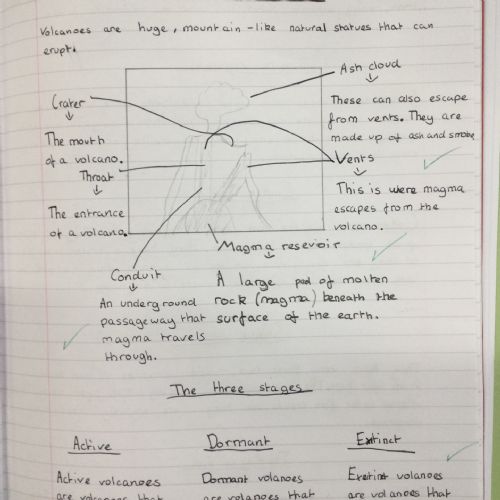 Volcanoes are huge, mountain-like natural statues that can
erupt.
Ash cloud
These can also escape
from vents. They are
made up of ash and smoke
Crater
The mouth
of a volcano.
Throat
The entrance
of a volcano.
Vents
This is were magma
escapes from the
volcano.
Magma reservoir
A large pool of molten
rock (magma) beneath the
surface of the earth.
Conduit
An underground
passageway that
magma travels
through.
The three stages
Active
Active volcanoes
are volcanoes that
Dormant
Dormant volanoes
are volanoes that
Extinct
Extinct volanoes
are volanoes that